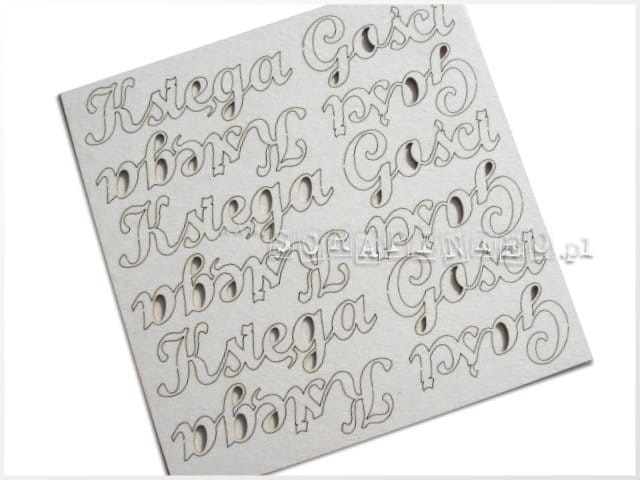 Księga Gości
Księga Gości
Księga Gości
SCRAPINIEC.pl
Księga Gości
Księga Gości
Księga Gości